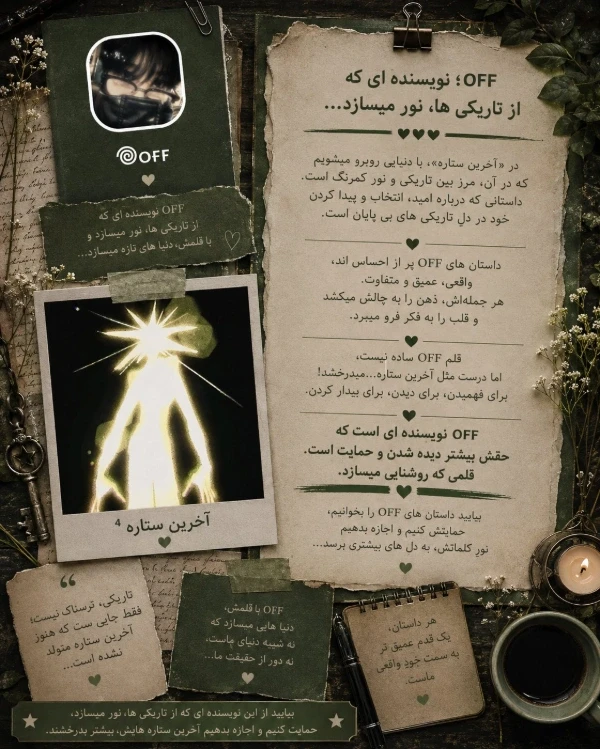 OFF
OFF نویسنده ای که
از تاریکی ها، نور میسازد و
با قلمش، دنیا های تازه میسازد...
آخرین ستاره ⁴
OFF؛ نویسنده ای که
از تاریکی ها، نور میسازد...
در «آخرین ستاره»، با دنیایی روبرو میشویم
که در آن، مرز بین تاریکی و نور کمرنگ است.
داستانی که درباره امید، انتخاب و پیدا کردن
خود در دلِ تاریکی های بی پایان است.
داستان های OFF پر از احساس اند،
واقعی، عمیق و متفاوت.
هر جمله‌اش، ذهن را به چالش میکشد
و قلب را به فکر فرو میبرد.
قلم OFF ساده نیست،
اما درست مثل آخرین ستاره...میدرخشد!
برای فهمیدن، برای دیدن، برای بیدار کردن.
OFF نویسنده ای است که
حقش بیشتر دیده شدن و حمایت است.
قلمی که روشنایی میسازد.
بیایید داستان های OFF را بخوانیم،
حمایتش کنیم و اجازه بدهیم
نورِ کلماتش، به دل های بیشتری برسد...
“
تاریکی، ترسناک نیست؛
فقط جایی ست که هنوز
آخرین ستاره متولد
نشده است...
OFF با قلمش،
دنیا هایی میسازد که
نه شبیه دنیای ماست،
نه دور از حقیقت ما...
هر داستان،
یک قدم عمیق تر
به سمت خودِ واقعی
ماست.
بیایید از این نویسنده ای که از تاریکی ها، نور میسازد،
حمایت کنیم و اجازه بدهیم آخرین ستاره هایش، بیشتر بدرخشند.